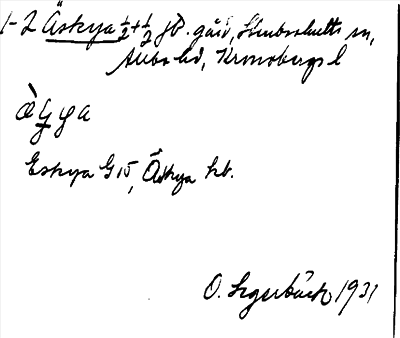 1-2 Äskya ½+½ jb. gård, Stenbrohults sn,
Allbo hd, Kronobergs l
Eskya G 15, Äskya kb.
O. Segerbäck 1931